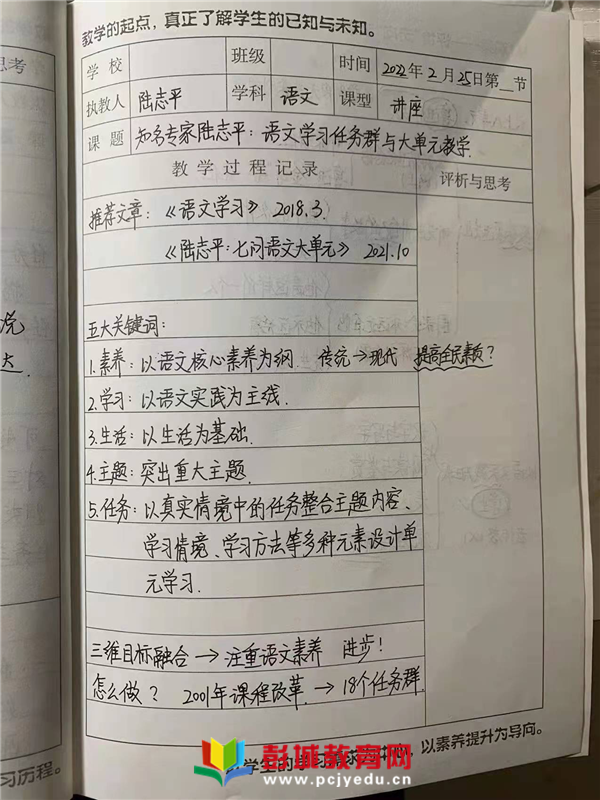 教学的起点，真正了解学生的已知与未知。
思考
学 校 班级 时间 2022年2月25日第 节
执教人 陆志平 学科 语文 课型 讲座
课 题 知名专家陆志平：语文学习任务群与大单元教学.
教 学 过 程 记 录 评析与思考
推荐文章：《语文学习》 2018.3.
《陆志平：七问语文大单元》 2021.10
五大关键词：
1.素养：以语文核心素养为纲. 传统→现代 提高全民素质？
2.学习：以语文实践为主线.
3.生活：以生活为基础.
4.主题：突出重大主题.
5.任务：以真实情境中的任务整合主题内容、
学习情境、学习方法等多种元素设计单
元学习.
三维目标融合→注重语文素养 进步！
怎么做？ 2001年课程改革.→18个任务群.
彭城教育网
www.pcjyedu.cn
学生的学习需求 中心，以素养提升为导向。
习历程。